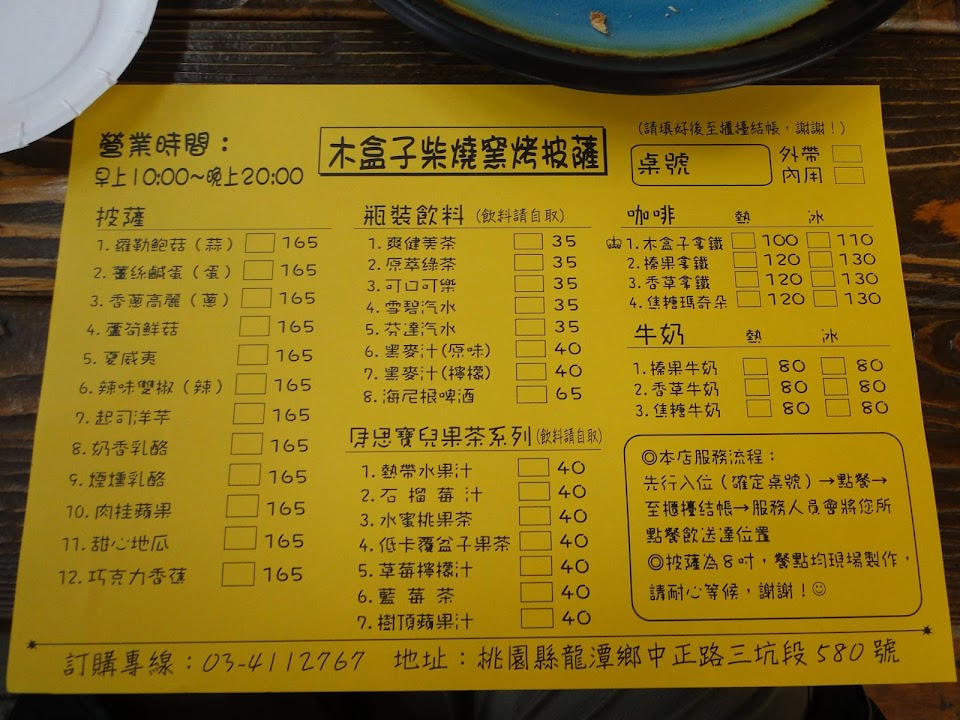 營業時間：
早上10:00～晚上20:00
木盒子柴燒窯烤披薩
(請填好後至櫃檯結帳，謝謝！)
桌號
外帶
內用
披薩
1. 羅勒鮑菇（蒜） 165
2. 薑絲鹹蛋（蛋） 165
3. 香蔥高麗（蔥） 165
4. 蘆筍鮮菇 165
5. 夏威夷 165
6. 辣味雙椒（辣） 165
7. 起司洋芋 165
8. 奶香乳酪 165
9. 煙燻乳酪 165
10. 肉桂蘋果 165
11. 甜心地瓜 165
12. 巧克力香蕉 165
瓶裝飲料 (飲料請自取)
1. 爽健美茶 35
2. 原萃綠茶 35
3. 可口可樂 35
4. 雪碧汽水 35
5. 芬達汽水 35
6. 黑麥汁(原味) 40
7. 黑麥汁(檸檬) 40
8. 海尼根啤酒 65
貝思寶兒果茶系列(飲料請自取)
1. 熱帶水果汁 40
2. 石榴莓汁 40
3. 水蜜桃果茶 40
4. 低卡覆盆子果茶 40
5. 草莓檸檬汁 40
6. 藍莓茶 40
7. 樹頂蘋果汁 40
咖啡 熱 冰
1. 木盒子拿鐵 100 110
2. 榛果拿鐵 120 130
3. 香草拿鐵 120 130
4. 焦糖瑪奇朵 120 130
牛奶 熱 冰
1. 榛果牛奶 80 80
2. 香草牛奶 80 80
3. 焦糖牛奶 80 80
◎本店服務流程：
先行入位（確定桌號）→點餐→
至櫃檯結帳→服務人員會將您所
點餐飲送達位置
◎披薩為8吋，餐點均現場製作，
請耐心等候，謝謝！☺
訂購專線：03-4112767 地址：桃園縣龍潭鄉中正路三坑段580號